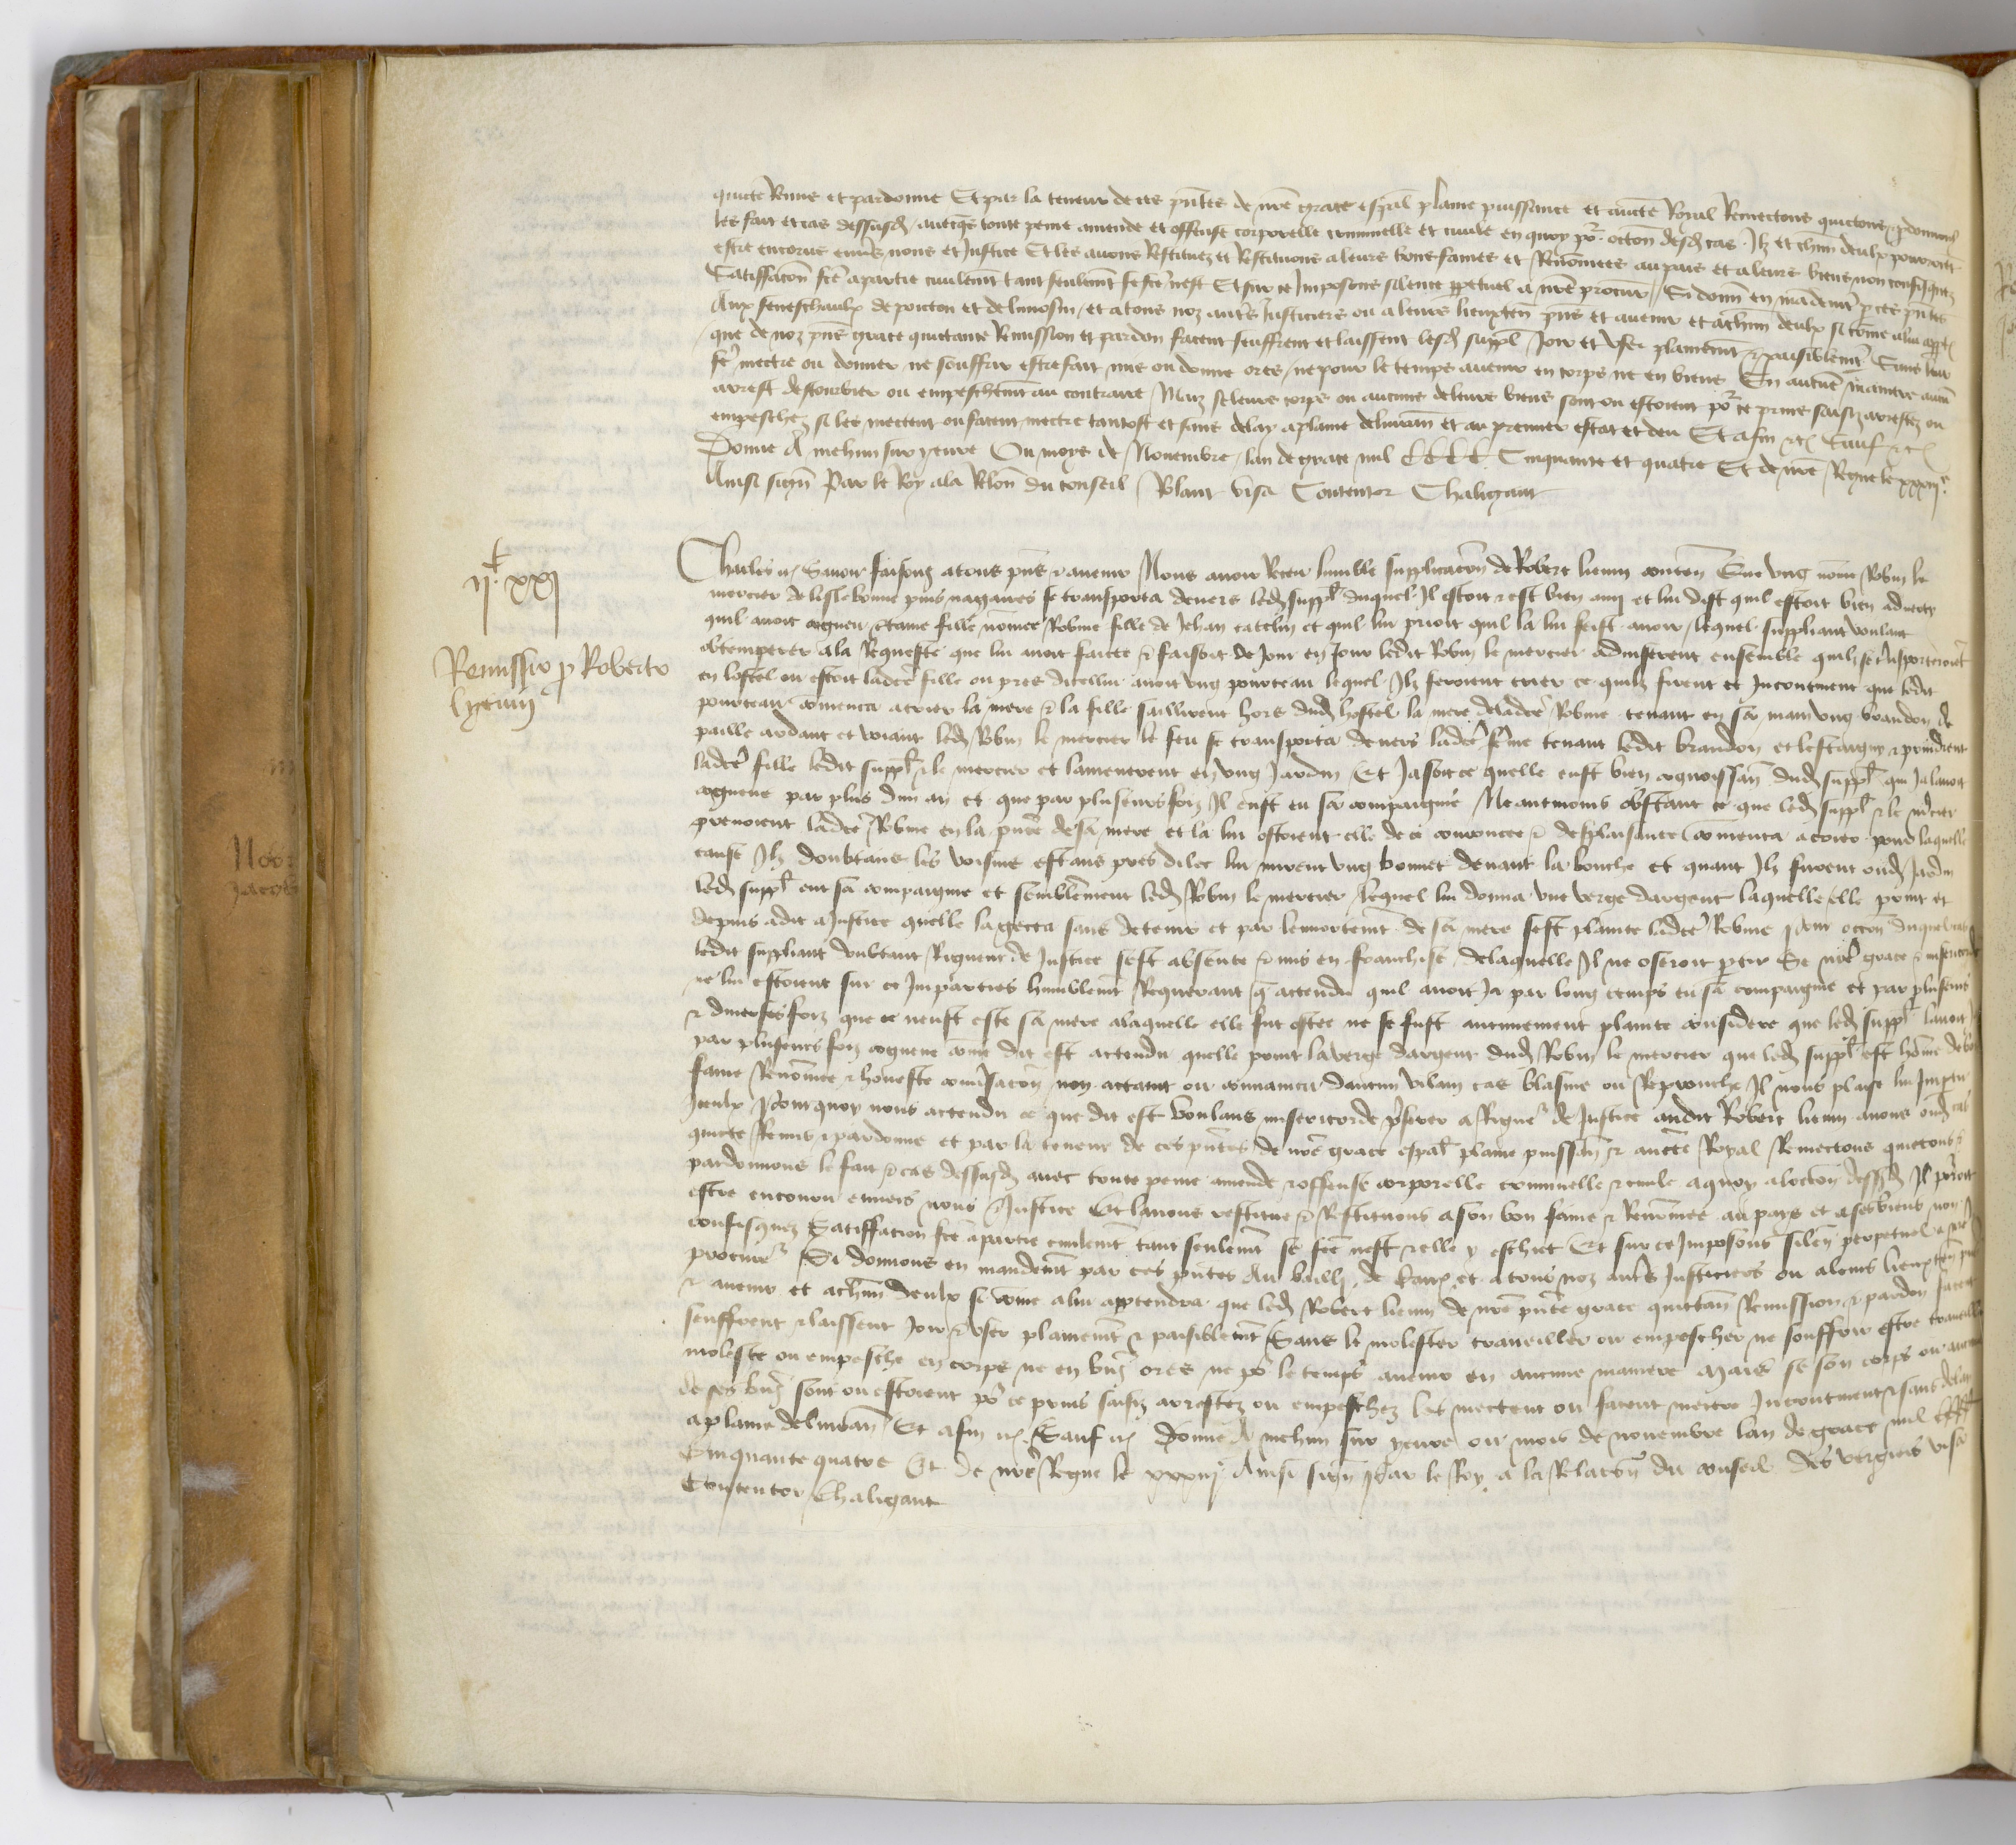 quicte Remis et pardonne Et par la teneur de ces pñtes de nrẽ grace espãl plaine puissance et aucte Royal Remectons quictons pdonnons
les fait et cas dessusd auecqs toute peine amende et offense corporelle criminelle et ciuile en quoy po^r occon desd cas Ilz et chũn deulx pourroient
estre encouruz enuers nous et Justice Et les auons Restituez et Restituons a leurs bons fames et Renommees au pais et a leurs biens non confisquez
Satisfacõn fcẽ a partie ciuilemt tant seulemt se fcẽ nest Et sur ce Imposons silence ppetuel a nrẽ procur^r Si donñ en mandemt p ces pñtes
Aux seneschaulx de poictou et de lymosin et a tous noz autrs Justiciers ou a leurs lieuxten pñs et auenir et a chũn deulx si cõme a lui apptⁿ
que de noz pñs grace quictance Remission et pardon facent seuffrent et laissent lesd suppl Joir et vser plainemt et paisiblemt Sans leur
fẽ mectre ou donner ne souffrir estre fait mis ou donne ores ne pour le temps auenir en corps ne en biens En aucune maniere aucũ
arrest destourbier ou empeschemt au contraire Maiz se leurs corps ou aucuns de leurs biens sont ou estoient po^r ce prins saisiz arrestez ou
empeschez si les mectent ou facent mectre tantost et sans delay a plaine deliurañ et au premier estat et deu Et afin etc Sauf etc
Donne A mehun sur yeure Ou moys de Nouembre lan de grace mil CCCC Cinquante et quatre Et de nrẽ Regne le xxxiij^e
Ainsi signẽ Par le Roy a la Relon du conseil Rolant visa Contentor Chaligaut
ij^c xxj
Remissio p Roberto
lyenin
Charles etc Sauoir faisons a tous pñs et auenir Nous auoir Receu lumble supplicacõn de Robert lienin contenⁿ Que vng nomme Robin le
mercier de lislebonne puis nagaires se transporta deuers led suppl duquel Il estoit et est bien amy et lui dist quil estoit bien aduerty
quil auoit cogneu certaine fille nommee Robine fille de Jehan catelin et quil lui prioit quil la lui feist auoir lequel suppliant voulant
obtemperer a la Requeste que lui auoit faicte et faisoit de jour en jour ledit Robin le mercier aduiserent ensemble quilz se trñsporteroient
en lostel ou estoit ladce fille ou pres dicellui auoit vng pourceau lequel Ilz feroient crier ce quilz firent et Incontinent que ledit
pourceau cõmenca a crier la mere et la fille saillirent hors dud hostel la mere de ladce Robine tenant en sa main vng brandon de
paille ardant et voiant led Robin le mercier le feu se transporta deuers ladce fẽme tenant ledit brandon et lestaigny et prindrent
ladce fille ledit suppl et le mercier et lamenerent en vng Jardin Et Jasoit ce quelle eust bien cognoissañ dud suppl qui ja lauoit
cogneue par plus dun an et que par pluseurs foiz Il eust eu sa compaignie Neantmoins obstant ce que led suppl et le mercier
prenoient ladce Robine en la pñce de sa mere et la lui ostoient elle de ce courroucee et desplaisante cõmenca a crier pour laquelle
cause Ilz doubtans les voisins estans pres dilec lui mirent vng bonnet deuant la bouche et quant Ilz furent oud Jardin
led suppl eut sa compaignie et semblemẽnt led Robin le mercier lequel lui donna vne verge dargent laquelle elle print et
depuis a dit a Justice quelle la gecta sans detenir et par lennortemt de sa mere sest plainte ladce Robine pour occon duquel cas
ledit suppliant doubtant Rigueur de Justice sest absente et mis en franchise de laquelle Il ne oseroit ptir Se nrẽ grace et misericorde
ne lui estoient sur ce Imparties humblemt Requerant q actendu quil auoit Ja par long temps eu sa compaignie et par pluseurs
et diuerses foiz que ce neust este sa mere a laquelle elle fut ostee ne se fust aucunement plainte considere que led suppl lauoit
par pluseurs foiz cogneue cõme dit est actendu quelle print la verge dargent dud Robin le mercier que led suppl est hõme de bon
fame Renommee et honneste conũsacõn non actaint ou conuaincu daucun vilain cas blasme ou Reprouche Il nous plaise lui Impartir
Icculx Pourquoy nous actendu ce que dit est Voulans misericorde pferer a Rigue^r de Justice audit Robert lienin auons oud cas
quicte Remis et pardonne et par la teneur de ces pñtes de nrẽ grace espal plaine puissañ et aucte Royal Remectons quictons et
pardonnons le fait et cas dessusd auec toute peine amende et offense corporelle criminelle et ciuile a quoy a loccõn dessusd Il pourroit
estre encouru enuers nous et Justice Et lauons restitue et Restituons a son bon fame et Renõmee au pays et a ses biens non
confisquez Satiffacion fcẽ a partie ciuilemt tant seulemt se fcẽ nest et elle y eschiet Et sur ce Imposons silen perpetuel a nrẽ
procure^r Si donnons en mandemt par ces pñtes Au bailli de Caux et a tous noz autrs Justiciers ou a leurs lieuxten pñs
et auenir et a chũn deulx si cõme a lui apptendra que led Robert lienin de nrẽ pñte grace quictañ Remission et pardon facent
seuffrent et laissent Joir et vser plainemt et paisiblemt Sans le molester trauailler ou empescher ne souffrir estre trauaille
moleste ou empesche en corps ne en biẽs ores ne po^r le temps auenir en aucune maniere Mais se son corps ou aucuns
de ses biẽs sont ou estoient po^r ce prins saisiz arrestez ou empeschez les mectent ou facent mectre Incontinent et sans delay
a plaine deliurañ Et afin etc Sauf etc Donne A mehun sur yeure ou mois de nouembre lan de grace mil CCCC
Cinquante quatre Et de nrẽ Regne le xxxiij Ainsi signẽ Par le Roy a la Relacõn du conseil Des vergiers visa
Contentor Chaligaut